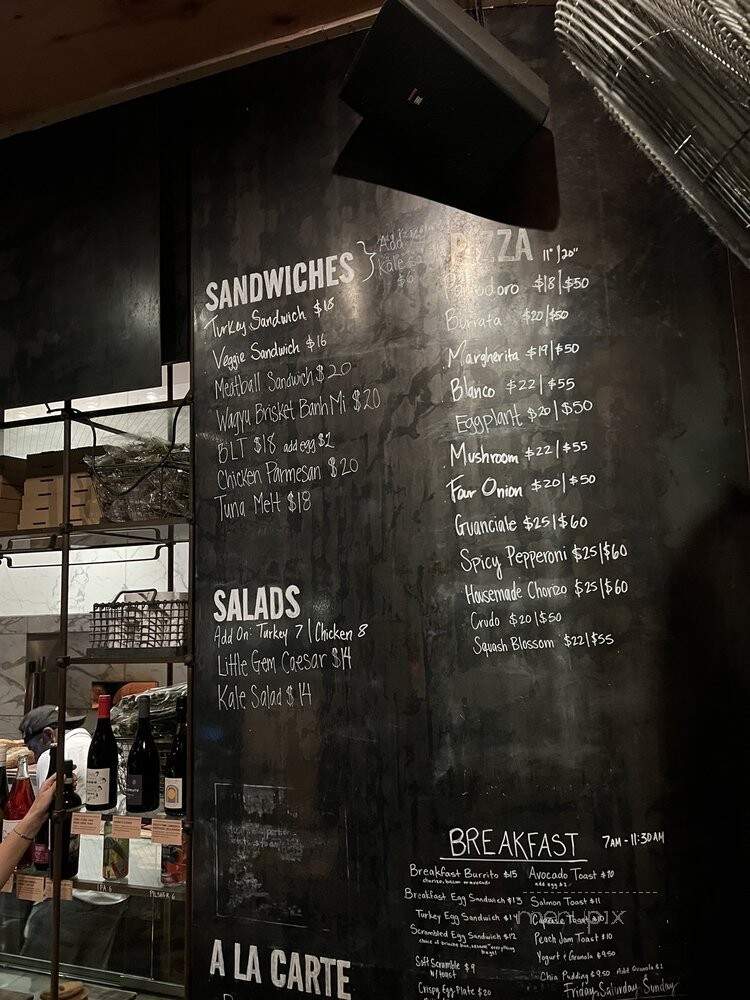 SANDWICHES
Add
Kale
$6
Turkey Sandwich $18
Veggie Sandwich $16
Meatball Sandwich $20
Wagyu Brisket Banh Mi $20
BLT $18 add egg $2
Chicken Parmesan $20
Tuna Melt $18
SALADS
Add On: Turkey 7 | Chicken 8
Little Gem Caesar $14
Kale Salad $14
A LA CARTE
PIZZA 11"|20"
Pomodoro $18|$50
Burrata $20|$50
Margherita $19|$50
Blanco $22|$55
Eggplant $20|$50
Mushroom $22|$55
Four Onion $20|$50
Guanciale $25|$60
Spicy Pepperoni $25|$60
Housemade Chorizo $25|$60
Crudo $20|$50
Squash Blossom $22|$55
BREAKFAST 7AM - 11:30AM
Breakfast Burrito $15
chorizo, bacon or avocado
Breakfast Egg Sandwich $13
Turkey Egg Sandwich $14
Scrambled Egg Sandwich $12
Soft Scramble $9
w/toast
Crispy Egg Plate $20
Avocado Toast $10
add egg $2
Salmon Toast $11
Caprese Toast $10
Peach Jam Toast $10
Yogurt + Granola $9.50
Chia Pudding $9.50 Add Granola $1
Friday, Saturday, Sunday
menupix
IPA 6
PILSNER 6